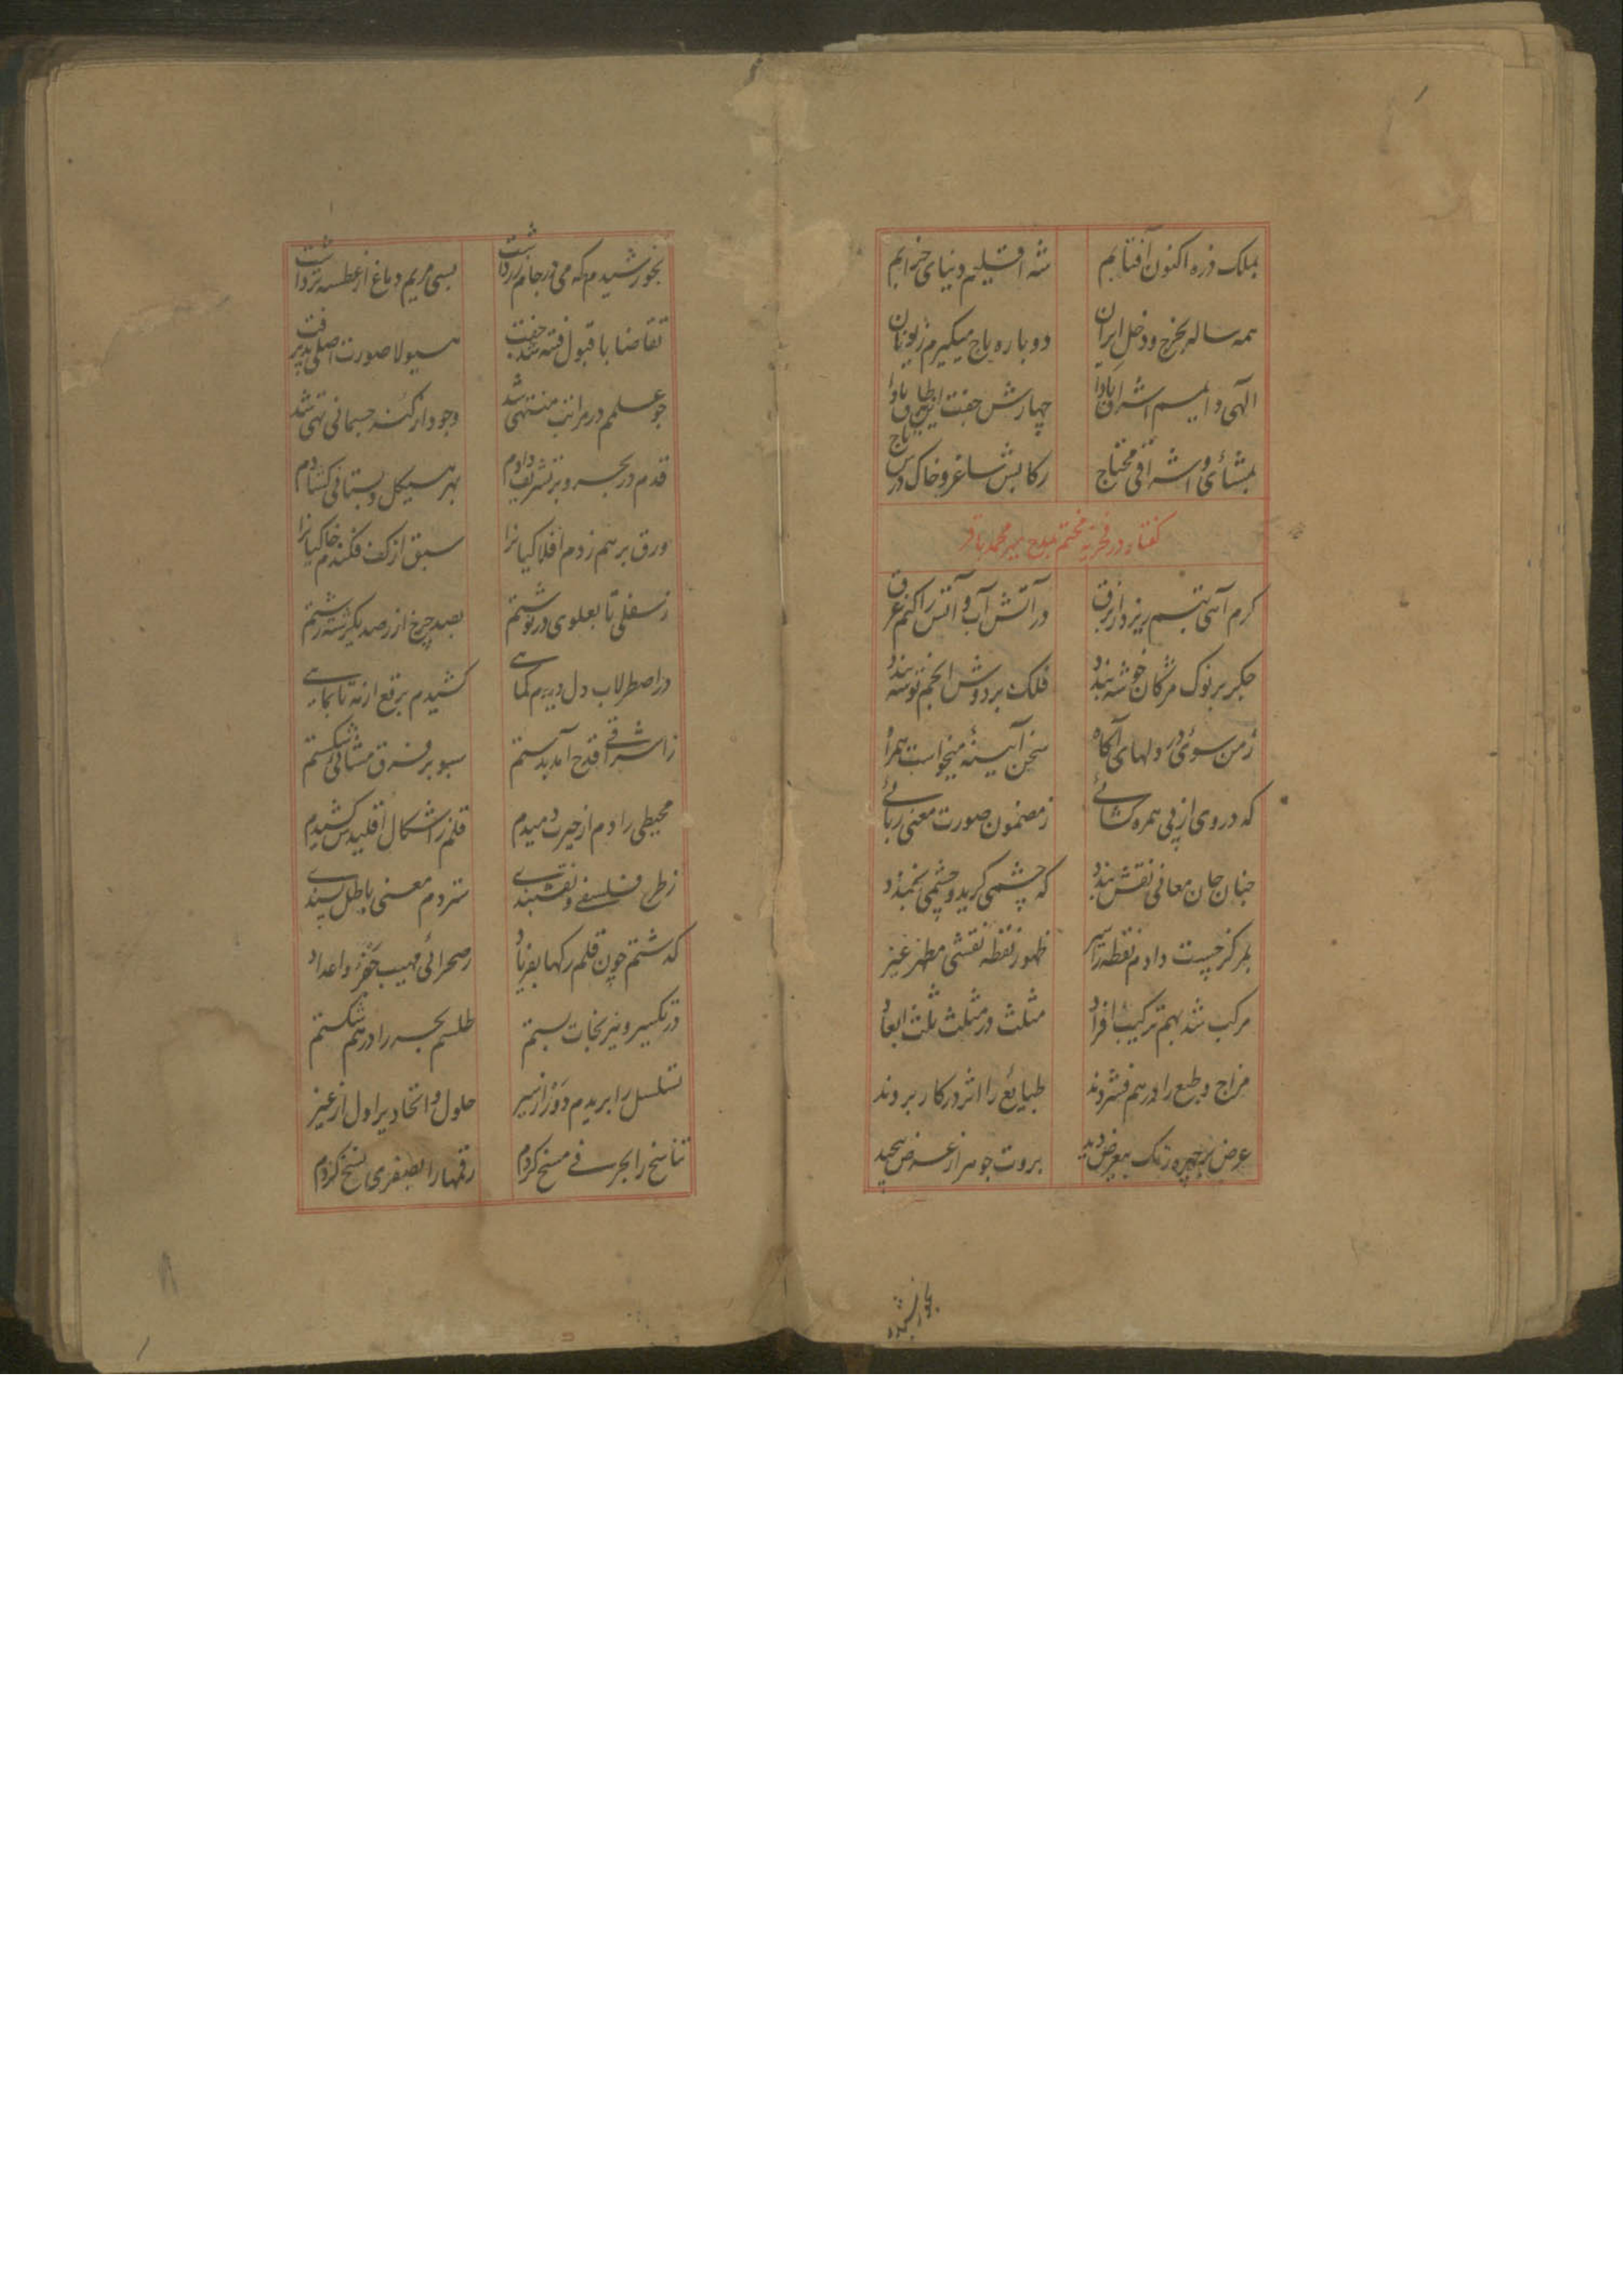 بملک ذره اکنون آفتابم شه اقلیم دنیای خرابم
همه ساله بخرج و دخل ایران دوباره باج میگیرم ز یونان
الهی دایم اشراق بادا چهارش جفت بادا
بمشائی و اشراقی محتاج رکابش ساغر و خاک درش تاج
گفتار در فخریه مختتم بمدح میر محمد باقر
کرم آهی تبسم ریزد از برق در آتش آب و آتش را کنم غرق
جگر بر نوک مژگان خوشه بندد فلک بر دوش انجم توشه بندد
ز من سوی در دلهای آگاه سخن آیینه میخواست همراه
که در وی از پی همره کشائے ز مضمون صورت معنی ربائے
چنان جان معانی نقش بندد که چشمی گرید و چشمی بخندد
بمرکز چست دادم نقطه را سیر ظهور نقطه نقشی مظهر غیر
مرکب شد بهم ترکیب افراد مثلث در مثلث ثلث ابعاد
مزاج و طبع را در هم فشردند طبایع را اثر در کار بردند
عرض بر چهره رنگ بعرض دید بروت جوهر از عرض پیچید
بخورشیدم
بخورشیدم که می در جام زر داشت بسی مریم دماغ از عطسه تر داشت
تقاضا با قبول فتنه شد جفت هیولا صورت اصلی پذیرفت
چو علمم در مراتب منتهی شد وجود از کنه جسمانی تهی شد
قدم در بحر و بر تشریف دادم بهر هیکل دبستانی کشادم
ورق بر هم زدم افلاکیانرا سبق از کف فکندم خاکیانرا
ز سفلی تا بعلوی در نوشتم بصد چرخ از رصد یکرشته رشتم
در اصطرلاب دل دیدم کماهے کشیدم برقع از مه تا بماهے
ز اشراقے قدح آمد بدستم سبو بر فرق مشائی شکستم
محیطی را دم از حیرت دمیدم قلم ز اشکال اقلیدس کشیدم
ز طرح فلسفے و نقشبندے ستردم معنی باطل پسندے
که شستم چون قلم رگها بفریاد ز صحرائی مهیب جفر و اعداد
در تکسیر و نیرنجات بستم طلسم بحر را در هم شکستم
تسلسل را بریدم دور از سیر حلول و اتحاد پر اول از غیر
تناسخ را بحرفے مسخ کردم رقمها را بصفری نسخ کردم